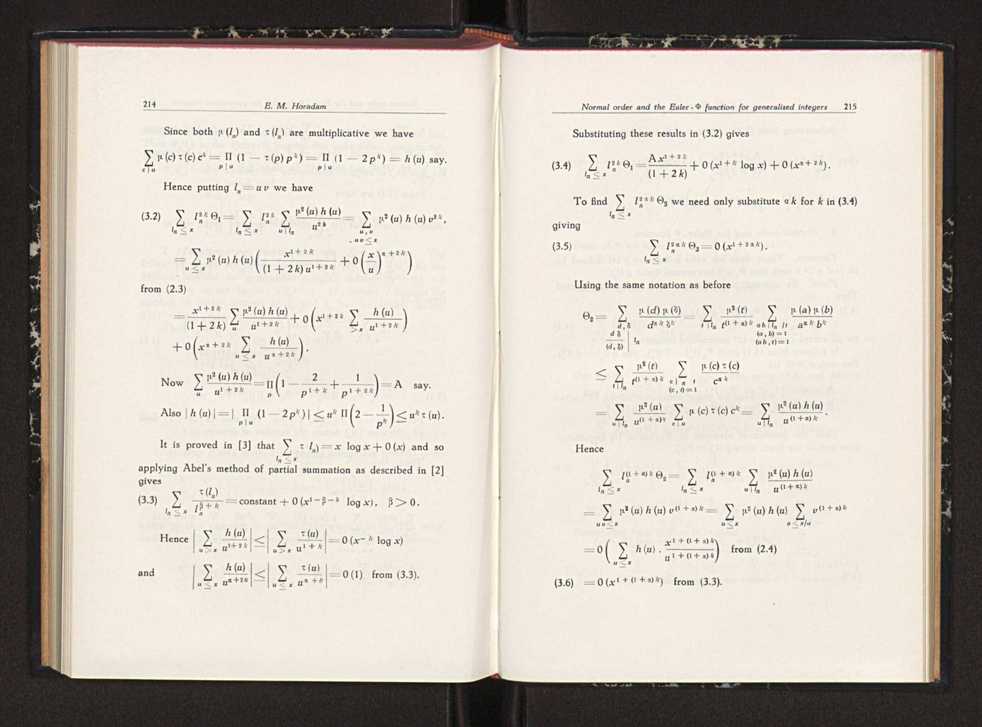 214 E. M. Horadam
Since both μ (l_n) and τ (l_n) are multiplicative we have
∑_{c|u} μ (c) τ (c) c^k = Π_{p|u} (1 − τ (p) p^k) = Π_{p|u} (1 − 2p^k) = h (u) say.
Hence putting l_n = u v we have
(3.2) ∑_{l_n ≤ x} l_n^{2k} Θ_1 = ∑_{l_n ≤ x} l_n^{2k} ∑_{u|l_n} μ² (u) h (u) / u^{2k} = ∑_{u,v, uv ≤ x} μ² (u) h (u) v^{2k},
= ∑_{u ≤ x} μ² (u) h (u) ( x^{1+2k} / (1 + 2k) u^{1+2k} + 0 (x/u)^{α+2k} )
from (2.3)
= x^{1+2k} / (1 + 2k) ∑_u μ² (u) h (u) / u^{1+2k} + 0 ( x^{1+2k} ∑_{> x} h (u) / u^{1+2k} )
+ 0 ( x^{α+2k} ∑_{u ≤ x} h (u) / u^{α+2k} ).
Now ∑_u μ² (u) h (u) / u^{1+2k} = Π_p ( 1 − 2 / p^{1+k} + 1 / p^{1+2k} ) = A say.
Also | h (u) | = | Π_{p|u} (1 − 2p^k) | ≤ u^k Π ( 2 − 1/p^k ) ≤ u^k τ (u).
It is proved in [3] that ∑_{l_n ≤ x} τ l_n) = x log x + 0 (x) and so
applying Abel's method of partial summation as described in [2]
gives
(3.3) ∑_{l_n ≤ x} τ (l_n) / l_n^{β+k} = constant + 0 (x^{1−β−k} log x), β > 0.
Hence | ∑_{u > x} h (u) / u^{1+2k} | ≤ | ∑_{u > x} τ (u) / u^{1+k} | = 0 (x^{−k} log x)
and | ∑_{u ≤ x} h (u) / u^{α+2k} | ≤ | ∑_{u ≤ x} τ (u) / u^{α+k} | = 0 (1) from (3.3).
Normal order and the Euler - Φ function for generalised integers 215
Substituting these results in (3.2) gives
(3.4) ∑_{l_n ≤ x} l_n^{2k} Θ_1 = A x^{1+2k} / (1 + 2k) + 0 (x^{1+k} log x) + 0 (x^{α+2k}).
To find ∑_{l_n ≤ x} l_n^{2αk} Θ_3 we need only substitute αk for k in (3.4)
giving
(3.5) ∑_{l_n ≤ x} l_n^{2αk} Θ_3 = 0 (x^{1+2αk}).
Using the same notation as before
Θ_2 = ∑_{d,δ, dδ/(d,δ) | l_n} μ (d) μ (δ) / d^{αk} δ^k = ∑_{t|l_n} μ² (t) / t^{(1+α)k} ∑_{ab|l_n/t, (a,b)=1, (ab,t)=1} μ (a) μ (b) / a^{αk} b^k
≤ ∑_{t|l_n} μ² (t) / t^{(1+α)k} ∑_{c|l_n/t, (c,t)=1} μ (c) τ (c) / c^{αk}
= ∑_{u|l_n} μ² (u) / u^{(1+α)k} ∑_{c|u} μ (c) τ (c) c^k = ∑_{u|l_n} μ² (u) h (u) / u^{(1+α)k}.
Hence
∑_{l_n ≤ x} l_n^{(1+α)k} Θ_2 = ∑_{l_n ≤ x} l_n^{(1+α)k} ∑_{u|l_n} μ² (u) h (u) / u^{(1+α)k}
= ∑_{uv ≤ x} μ² (u) h (u) v^{(1+α)k} = ∑_{u ≤ x} μ² (u) h (u) ∑_{v ≤ x/u} v^{(1+α)k}
= 0 ( ∑_{u ≤ x} h (u) . x^{1+(1+α)k} / u^{1+(1+α)k} ) from (2.4)
(3.6) = 0 (x^{1+(1+α)k}) from (3.3).